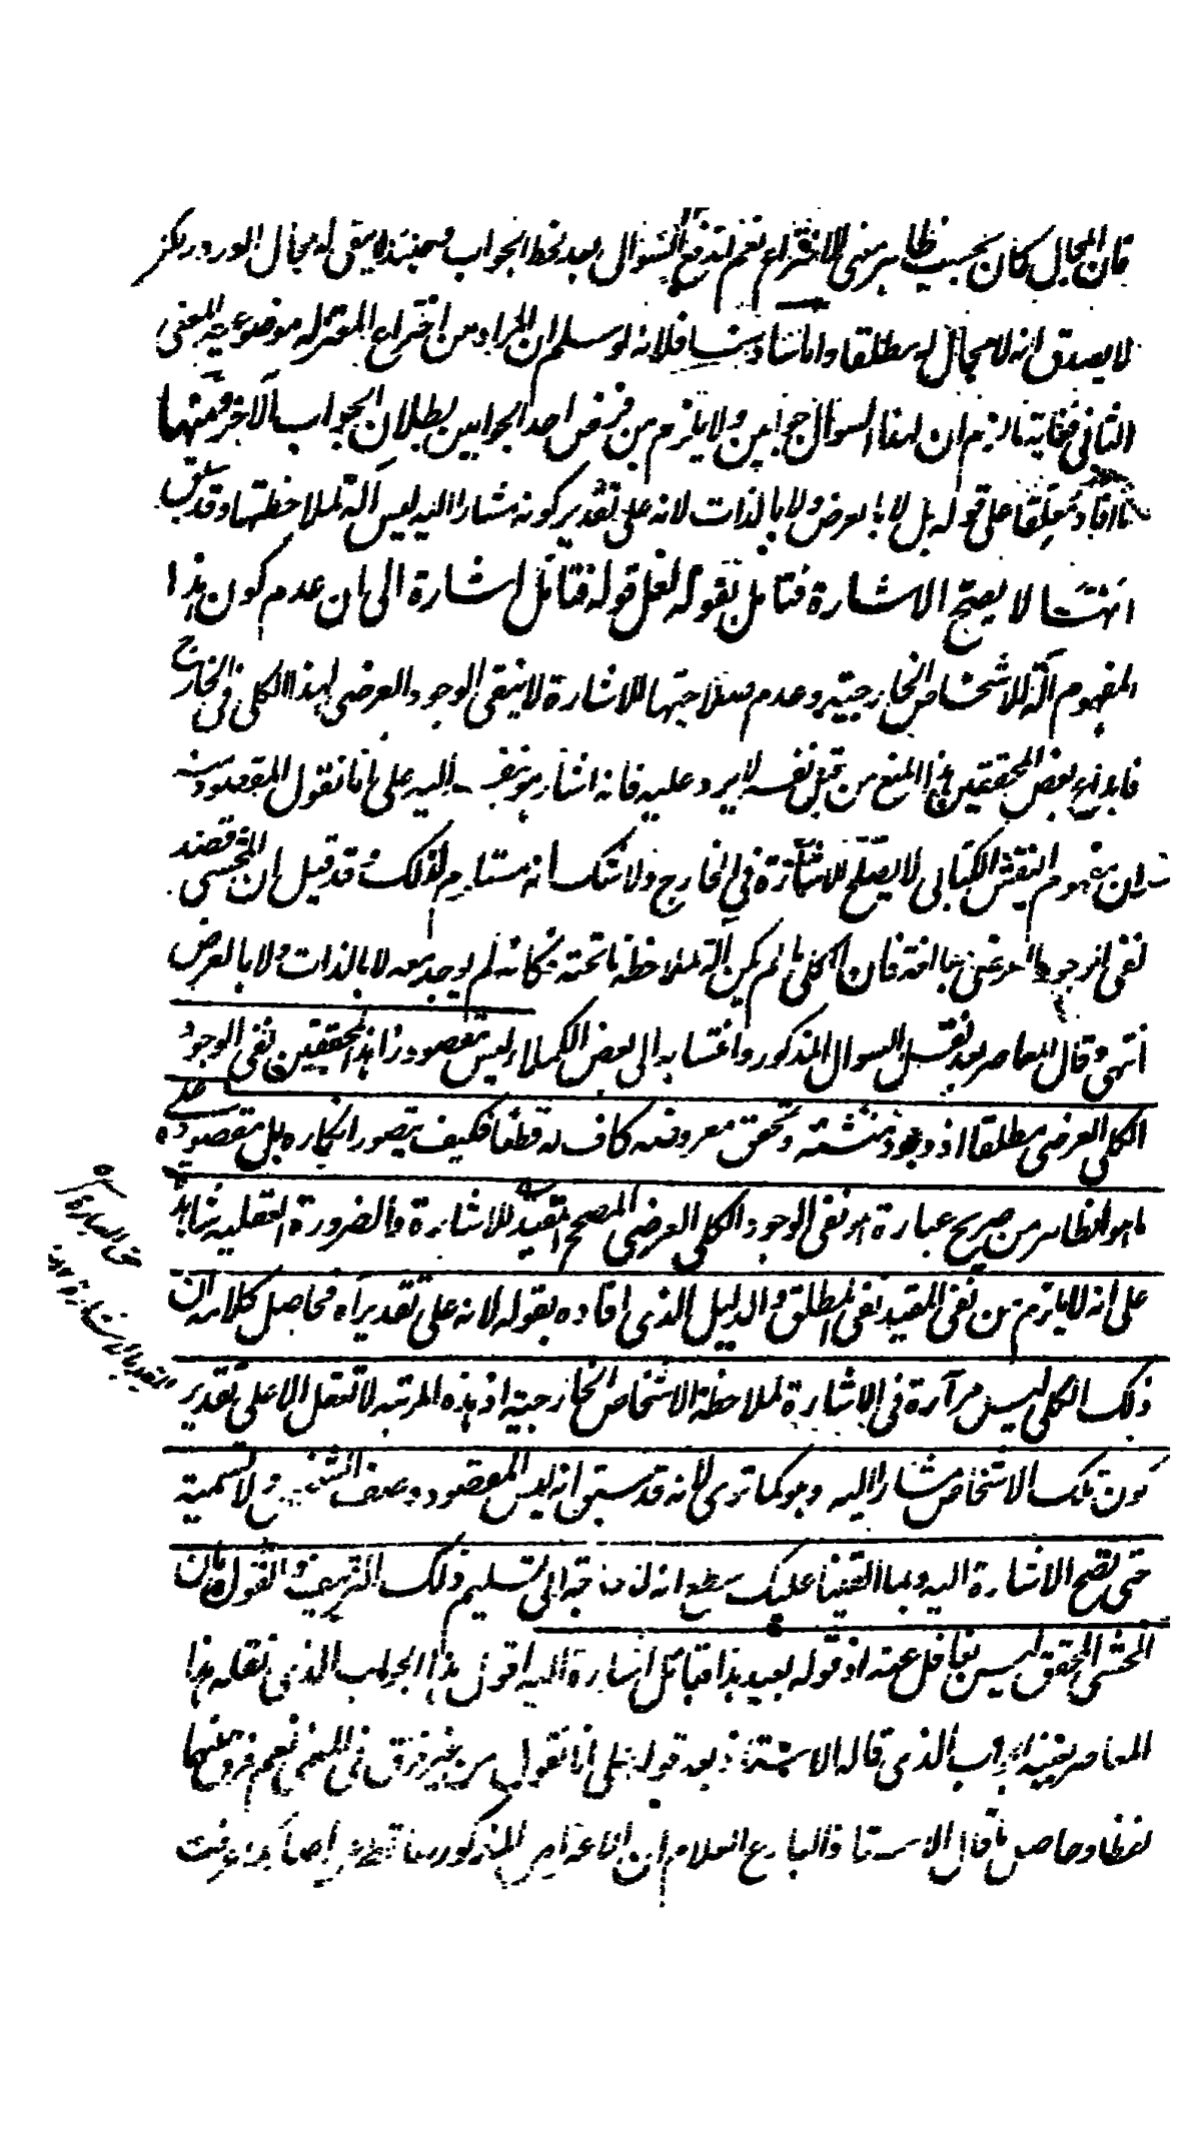 فان المجال كان بحسب ظاهر معنى الاختراع نعم لدفع السوال بعد لحظ الجواب وحينئذ يبقى له مجال الورود لكن
لا يصدق انه لا مجال له مطلقا واما فلانه لو سلم ان المراد من اختراع المعتزلة موضوعية المعنى
الثانى فغاية ما لزم ان لهذا السوال جوابين ولا يلزم من فرض احد الجوابين بطلان الجواب الآخر ومنها
ما افاد معلقا على قوله بل لا بالعرض ولا بالذات لانه على تقدير كونه مشارا اليه ليس آلة لملاحظتها وقد سبق
انها لا يصح الاشارة فتامل بقوله لعل قوله فتامل اشارة الى ان عدم كون هذا
المفهوم آلة للاشخاص الخارجية وعدم صلاحيتها للاشارة لا ينفى الوجود العرضى لهذا الكلى فى الخارج
فابداء بعض المحققين هذا المنع من قبل نفسه لا يرد عليه فانه اشار بنفسه اليه على انا نقول المقصود منه
ان مفهوم النقش الكتابى لا يصلح للاشارة فى الخارج ولا شك انه مستلزم لذلك وقد قيل ان المحشى قصد
نفى الوجود العرضى مبالغة فان الكلى ما لم يكن آلة لملاحظة ما تحته فكانه لم يوجد معه لا بالذات ولا بالعرض
انتهى وقال المعاصر بعد نقل السوال المذكور وانتسابه الى بعض الكملاء ليس مقصود زاهد المحققين نفى الوجود
الكلى العرضى مطلقا اذ وجود منشئه وتحقق معروضه كاف له قطعا فكيف يتصور انكاره بل مقصوده على
ما هو الظاهر من صريح عبارة هو نفى الوجود الكلى العرضى المصحح المقيد للاشارة والضرورة العقلية شاهدة
على انه لا يلزم من نفى المقيد نفى المطلق والدليل الذى افاده بقوله لانه على تقدير آه فحاصل كلامه ان
ذلك الكلى ليس مرآة فى الاشارة لملاحظة الاشخاص الخارجية اذ هذه المرتبة لا تعقل الا على تقدير
كون تلك الاشخاص مشارا اليه وهو كما ترى لانه قد سبق انه ليس المقصود وصف ولا تسمية
حتى تصح الاشارة اليه وبما القينا عليك سطع انه لا حاجة الى تسليم ذلك التزييف والقول بان
المحشى المحقق ليس بغافل عنه اذ قوله بعيد هذا فتامل اشارة اليه اقول هذا الجواب الذى نقله هذا
المعاصر بعينه الجواب الذى قاله الاستاذ بعد قوله على انا نقول من غير فرق فى المعنى نعم فرق بينهما
لفظا وحاصل ما قال الاستاذ البارع العلام ان الاعتراض المذكور ساقط عرفت